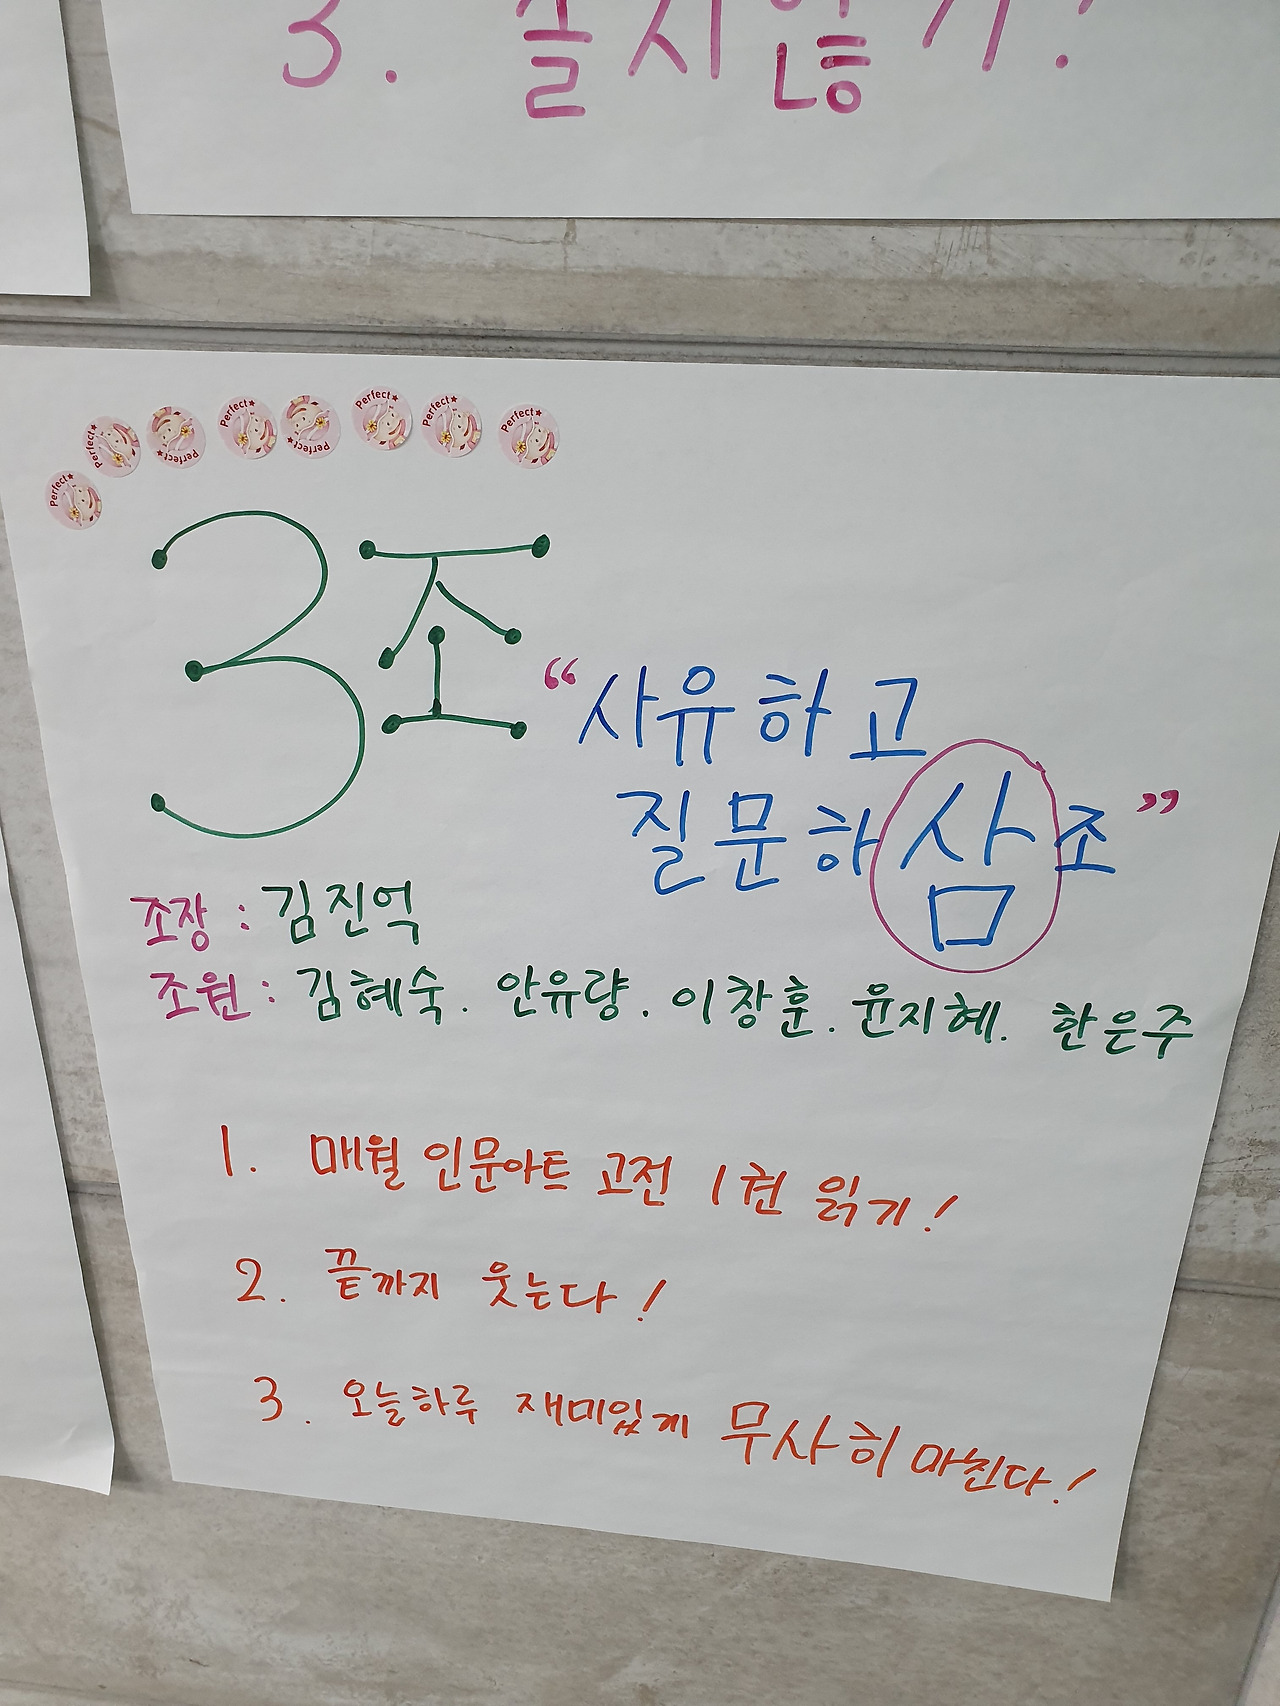 3. 졸지않기!
Perfect Perfect Perfect Perfect Perfect Perfect Perfect Perfect
3조
“사유하고
질문하삼조”
조장 : 김진억
조원 : 김혜숙. 안유량. 이창훈. 윤지혜. 한은주
1. 매월 인문아트 고전 1권 읽기!
2. 끝까지 웃는다!
3. 오늘하루 재미있게 무사히 마친다!